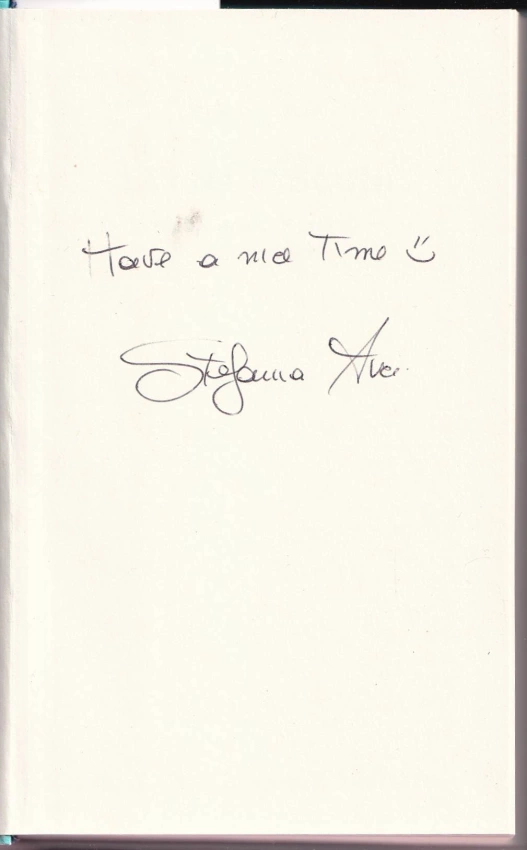 Have a nice Time
Stefania